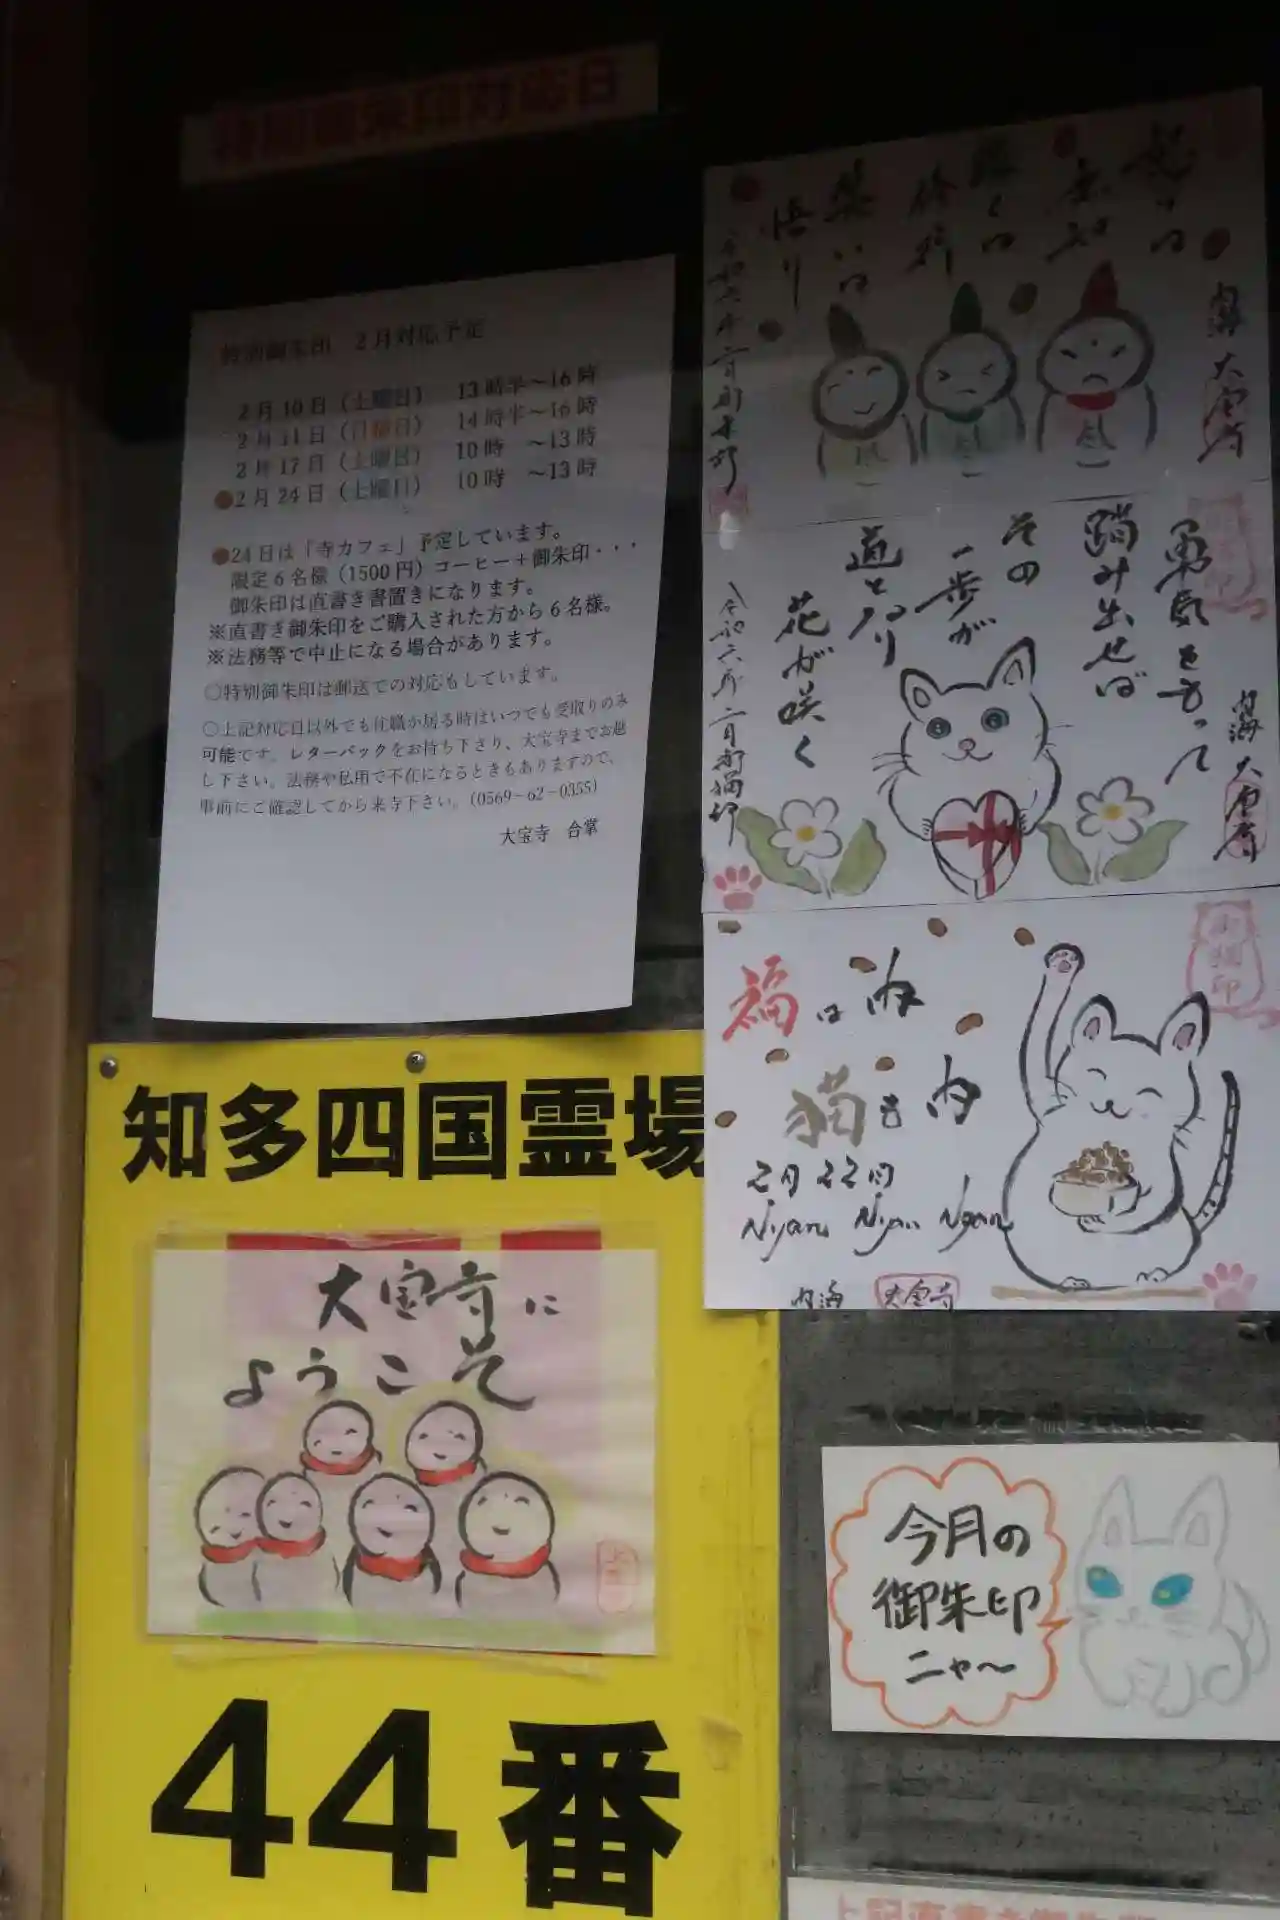 特別御朱印対応日
特別御朱印　2月対応予定
2月10日（土曜日）　13時半～16時
2月11日（日曜日）　14時半～16時
2月17日（土曜日）　10時　～13時
●2月24日（土曜日）　10時　～13時
●24日は「寺カフェ」予定しています。
限定6名様（1500円）コーヒー＋御朱印・・・
御朱印は直書き書置きになります。
※直書き御朱印をご購入された方から6名様。
※法務等で中止になる場合があります。
○特別御朱印は郵送での対応もしています。
○上記対応日以外でも住職が居る時はいつでも受取りのみ
可能です。レターパックをお持ち下さり、大宝寺までお越
し下さい。法務や私用で不在になるときもありますので、
事前にご確認してから来寺下さい。（0569-62-0355）
大宝寺　合掌
修行
笑いは
悟り
内海 大宝寺
勇気を もって
踏み出せば
その
一歩が
道となり
花が咲く
令和六年 二月 御猫印
内海 大宝寺
福は内
猫も内
2月22日
Nyan Nyan Nyan
内海 大宝寺
御猫印
知多四国霊場
大宝寺に
ようこそ
44番
今月の
御朱印
ニャ～